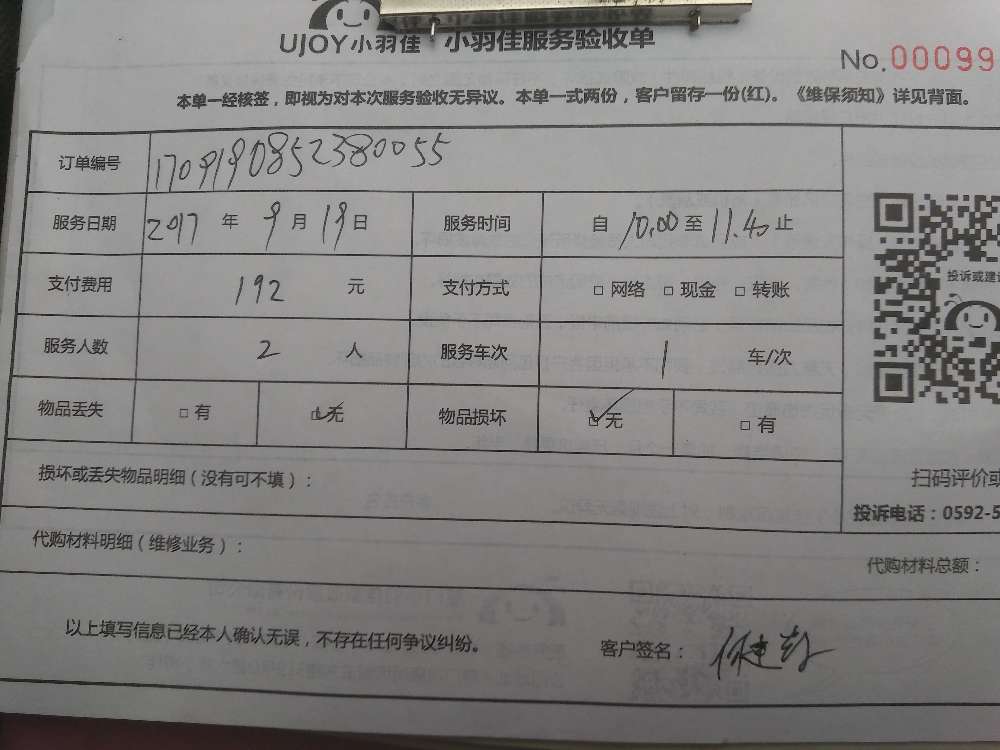 UJOY小羽佳 · 小羽佳服务验收单
No.00099
本单一经核签，即视为对本次服务验收无异议。本单一式两份，客户留存一份(红)。《维保须知》详见背面。
订单编号 1709190852380055
服务日期 2017 年 9 月 19 日 服务时间 自 10.00 至 11.40 止
支付费用 192 元 支付方式 □ 网络 □ 现金 □ 转账
投诉或建议
服务人数 2 人 服务车次 1 车/次
物品丢失 □ 有 □ 无 物品损坏 □ 无 □ 有
损坏或丢失物品明细（没有可不填）：
扫码评价或
投诉电话：0592-5
代购材料明细（维修业务）：
代购材料总额：
以上填写信息已经本人确认无误，不存在任何争议纠纷。
客户签名：